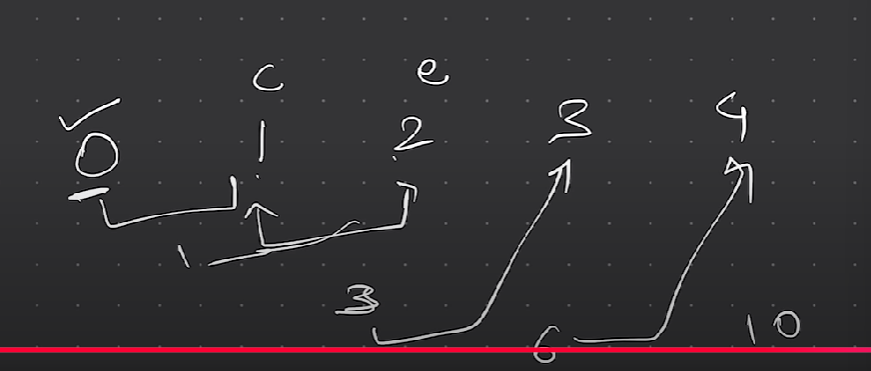 c e
0 1 2 3 4
1
3
6 10